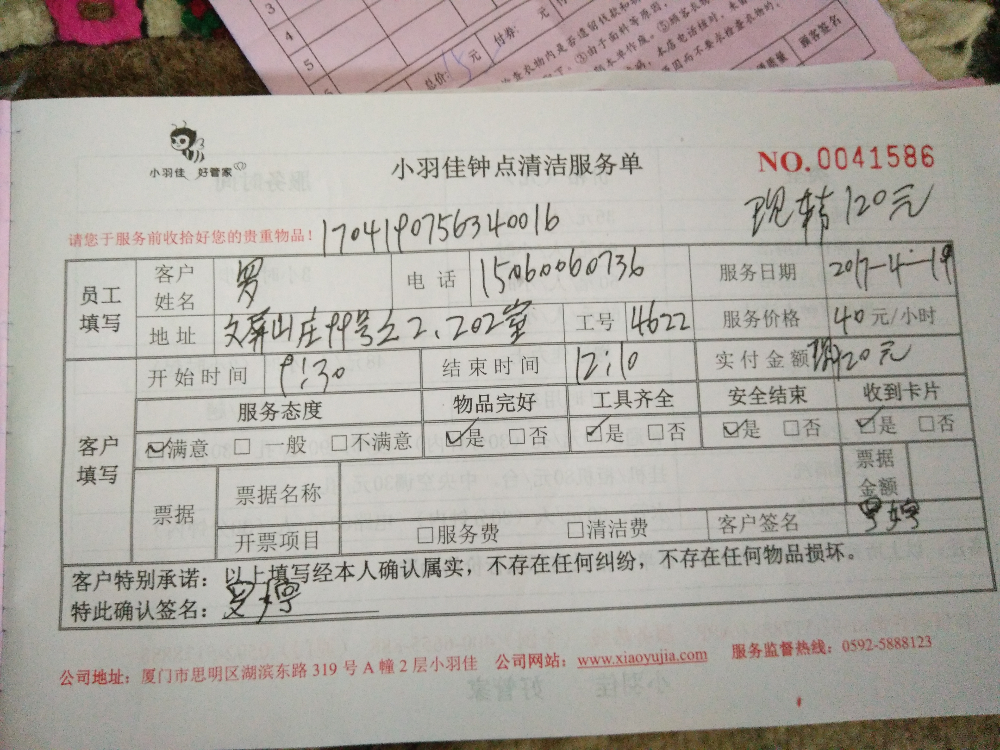 3
4
5
元
付券:
总价: 15 元
顾客签名
小羽佳 好管家
小羽佳钟点清洁服务单
NO.0041586
现转120元
请您于服务前收拾好您的贵重物品!
1704190756340016
员工填写
客户姓名 罗 电话 15060060736 服务日期 2017-4-19
地址 文屏山庄99号之2,202室 工号 4622 服务价格 40元/小时
客户填写
开始时间 9:30 结束时间 12:10 实付金额 现120元
服务态度 物品完好 工具齐全 安全结束 收到卡片
☑满意 □一般 □不满意 ☑是 □否 ☑是 □否 ☑是 □否 ☑是 □否
票据 票据名称 票据金额
开票项目 □服务费 □清洁费 客户签名 罗婷
客户特别承诺:以上填写经本人确认属实,不存在任何纠纷,不存在任何物品损坏。
特此确认签名:罗婷
公司地址:厦门市思明区湖滨东路 319 号 A 幢 2 层小羽佳 公司网站:www.xiaoyujia.com 服务监督热线:0592-5888123